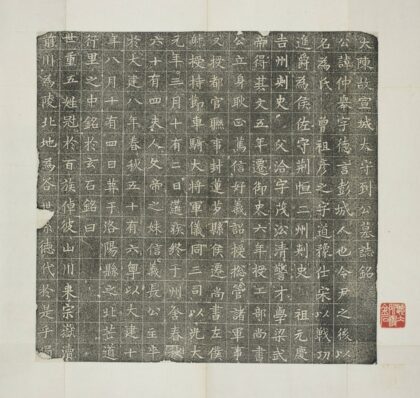 大陳故宣城太守到公墓誌銘
公諱仲舉字德言彭城人也令尹之後以
名為氏曾祖彥之字道豫仕宋以戰功
進爵為侯佐守荊恒二州刺史 祖元慶
吉州刺史 父洽字茂㳂清警才學梁武
帝得其文五年遷御史六年授工部尚書
公立身耿正篤信好義詔授揔管諸軍事
又授都官聯事封蓮芍縣侯遷尚書左僕
射授持節車騎大將軍儀同三司以光大
元年三月十有二日遘疾終于州舍春秋
六十有四夫人文帝之妹信義長公主
於大建八年春秋五十有六以大建十
年八月十有四日葬于洛陽縣之北芒道
行里之中銘於玄石銘曰
世重五姓冠於百族倬彼山川来宗嶽瀆
川為陵北地為谷世德代於是乎